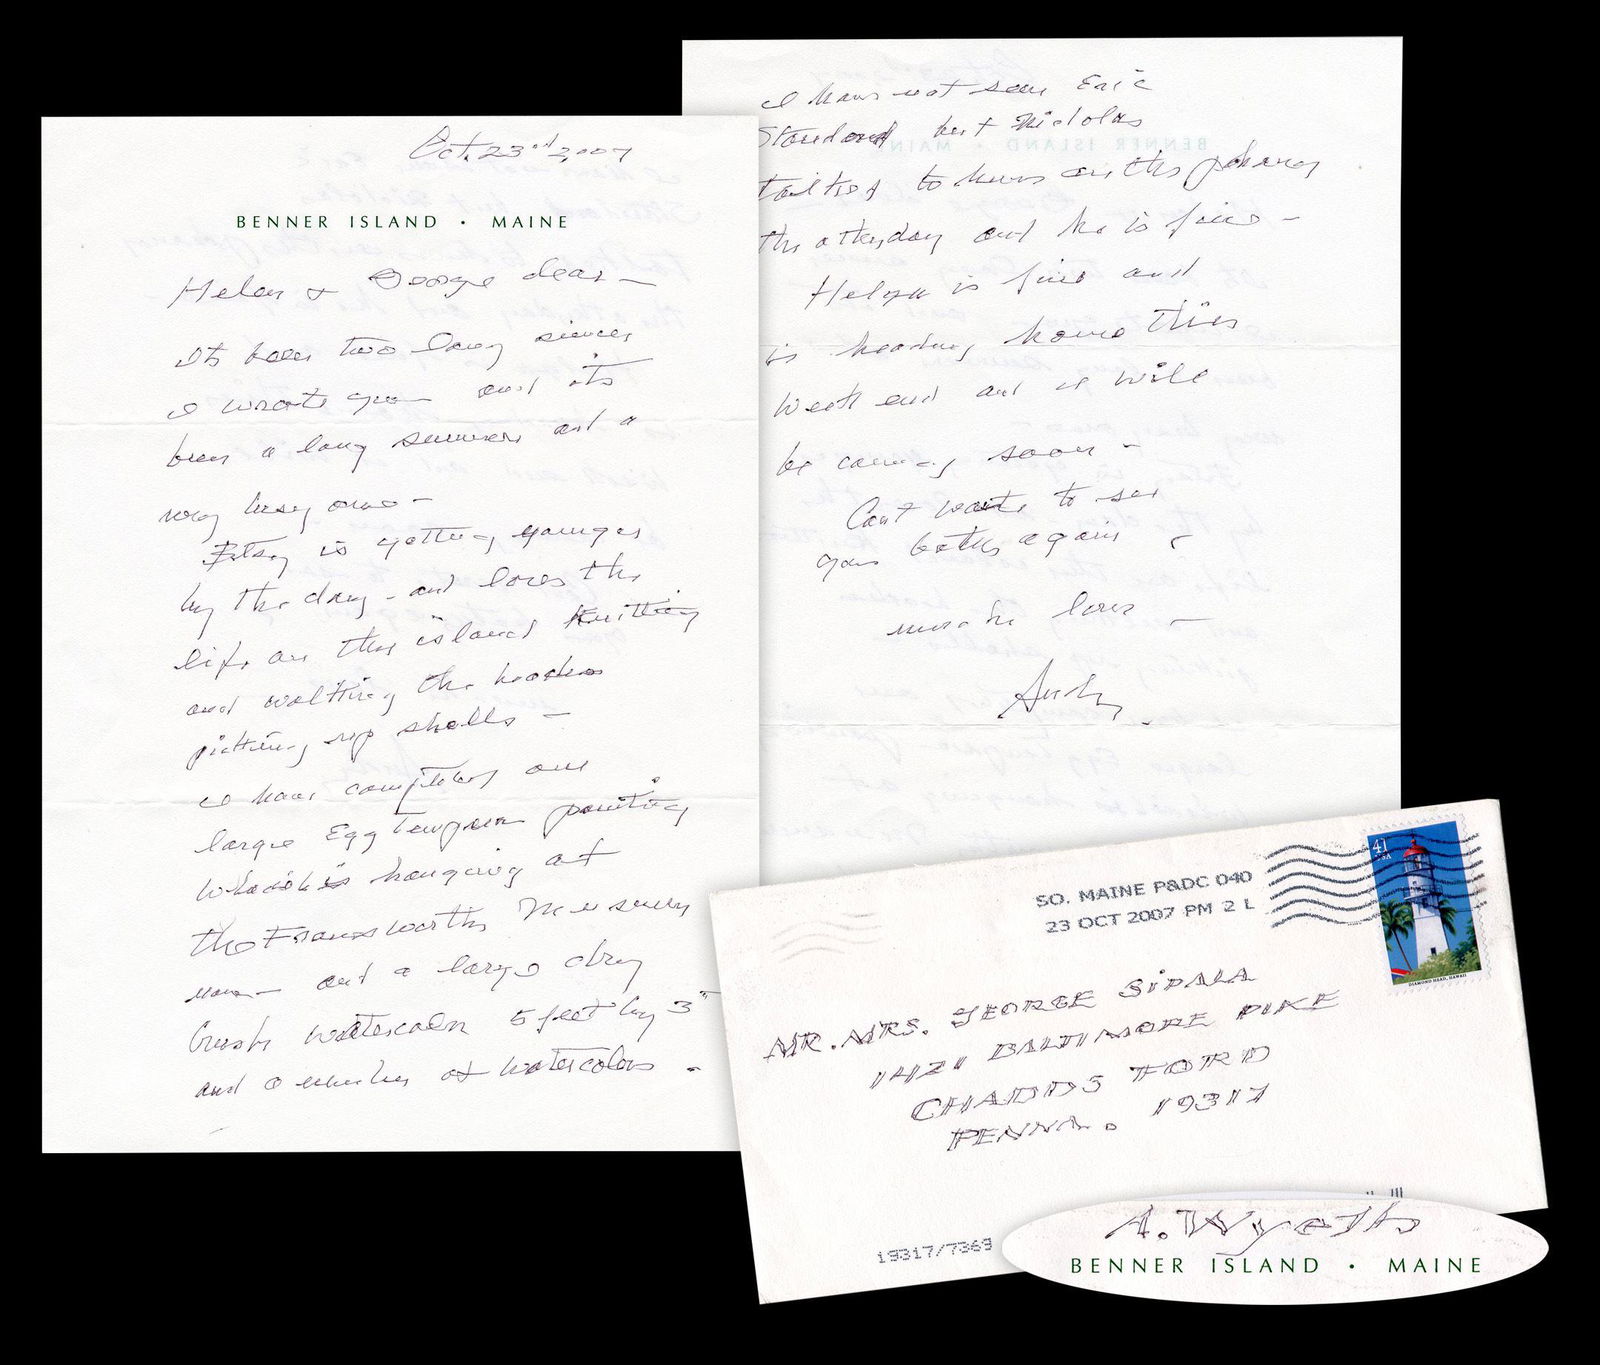 Oct. 23rd 2007
BENNER ISLAND • MAINE
Helen & George dear —
Its been two long since
I wrote you and its
been a long summer and a
very busy one —
Betsy is getting younger
by the day - and loves the
life on this island Knitting
and walking the beaches
picking up shells —
I have completed one
large Egg Tempera painting
which is hanging at
the Farnsworth Museum
now — and a large dry
brush watercolor 5 feet by 3"
and a number of watercolors -
I have not seen Eric
Standard but Nicholas
talked to him on the phone
the other day and he is fine —
Helga is fine and
is heading home this
week end and I will
be coming soon -
Can't wait to see
you both again -
much love —
Andy.
SO. MAINE P&DC 040
23 OCT 2007 PM 2 L
41
USA
DIAMOND HEAD, HAWAII
MR. MRS. GEORGE SIPALA
1421 BALTIMORE PIKE
CHADDS FORD
PENNA. 19317
19317/7369
A. Wyeth
BENNER ISLAND • MAINE